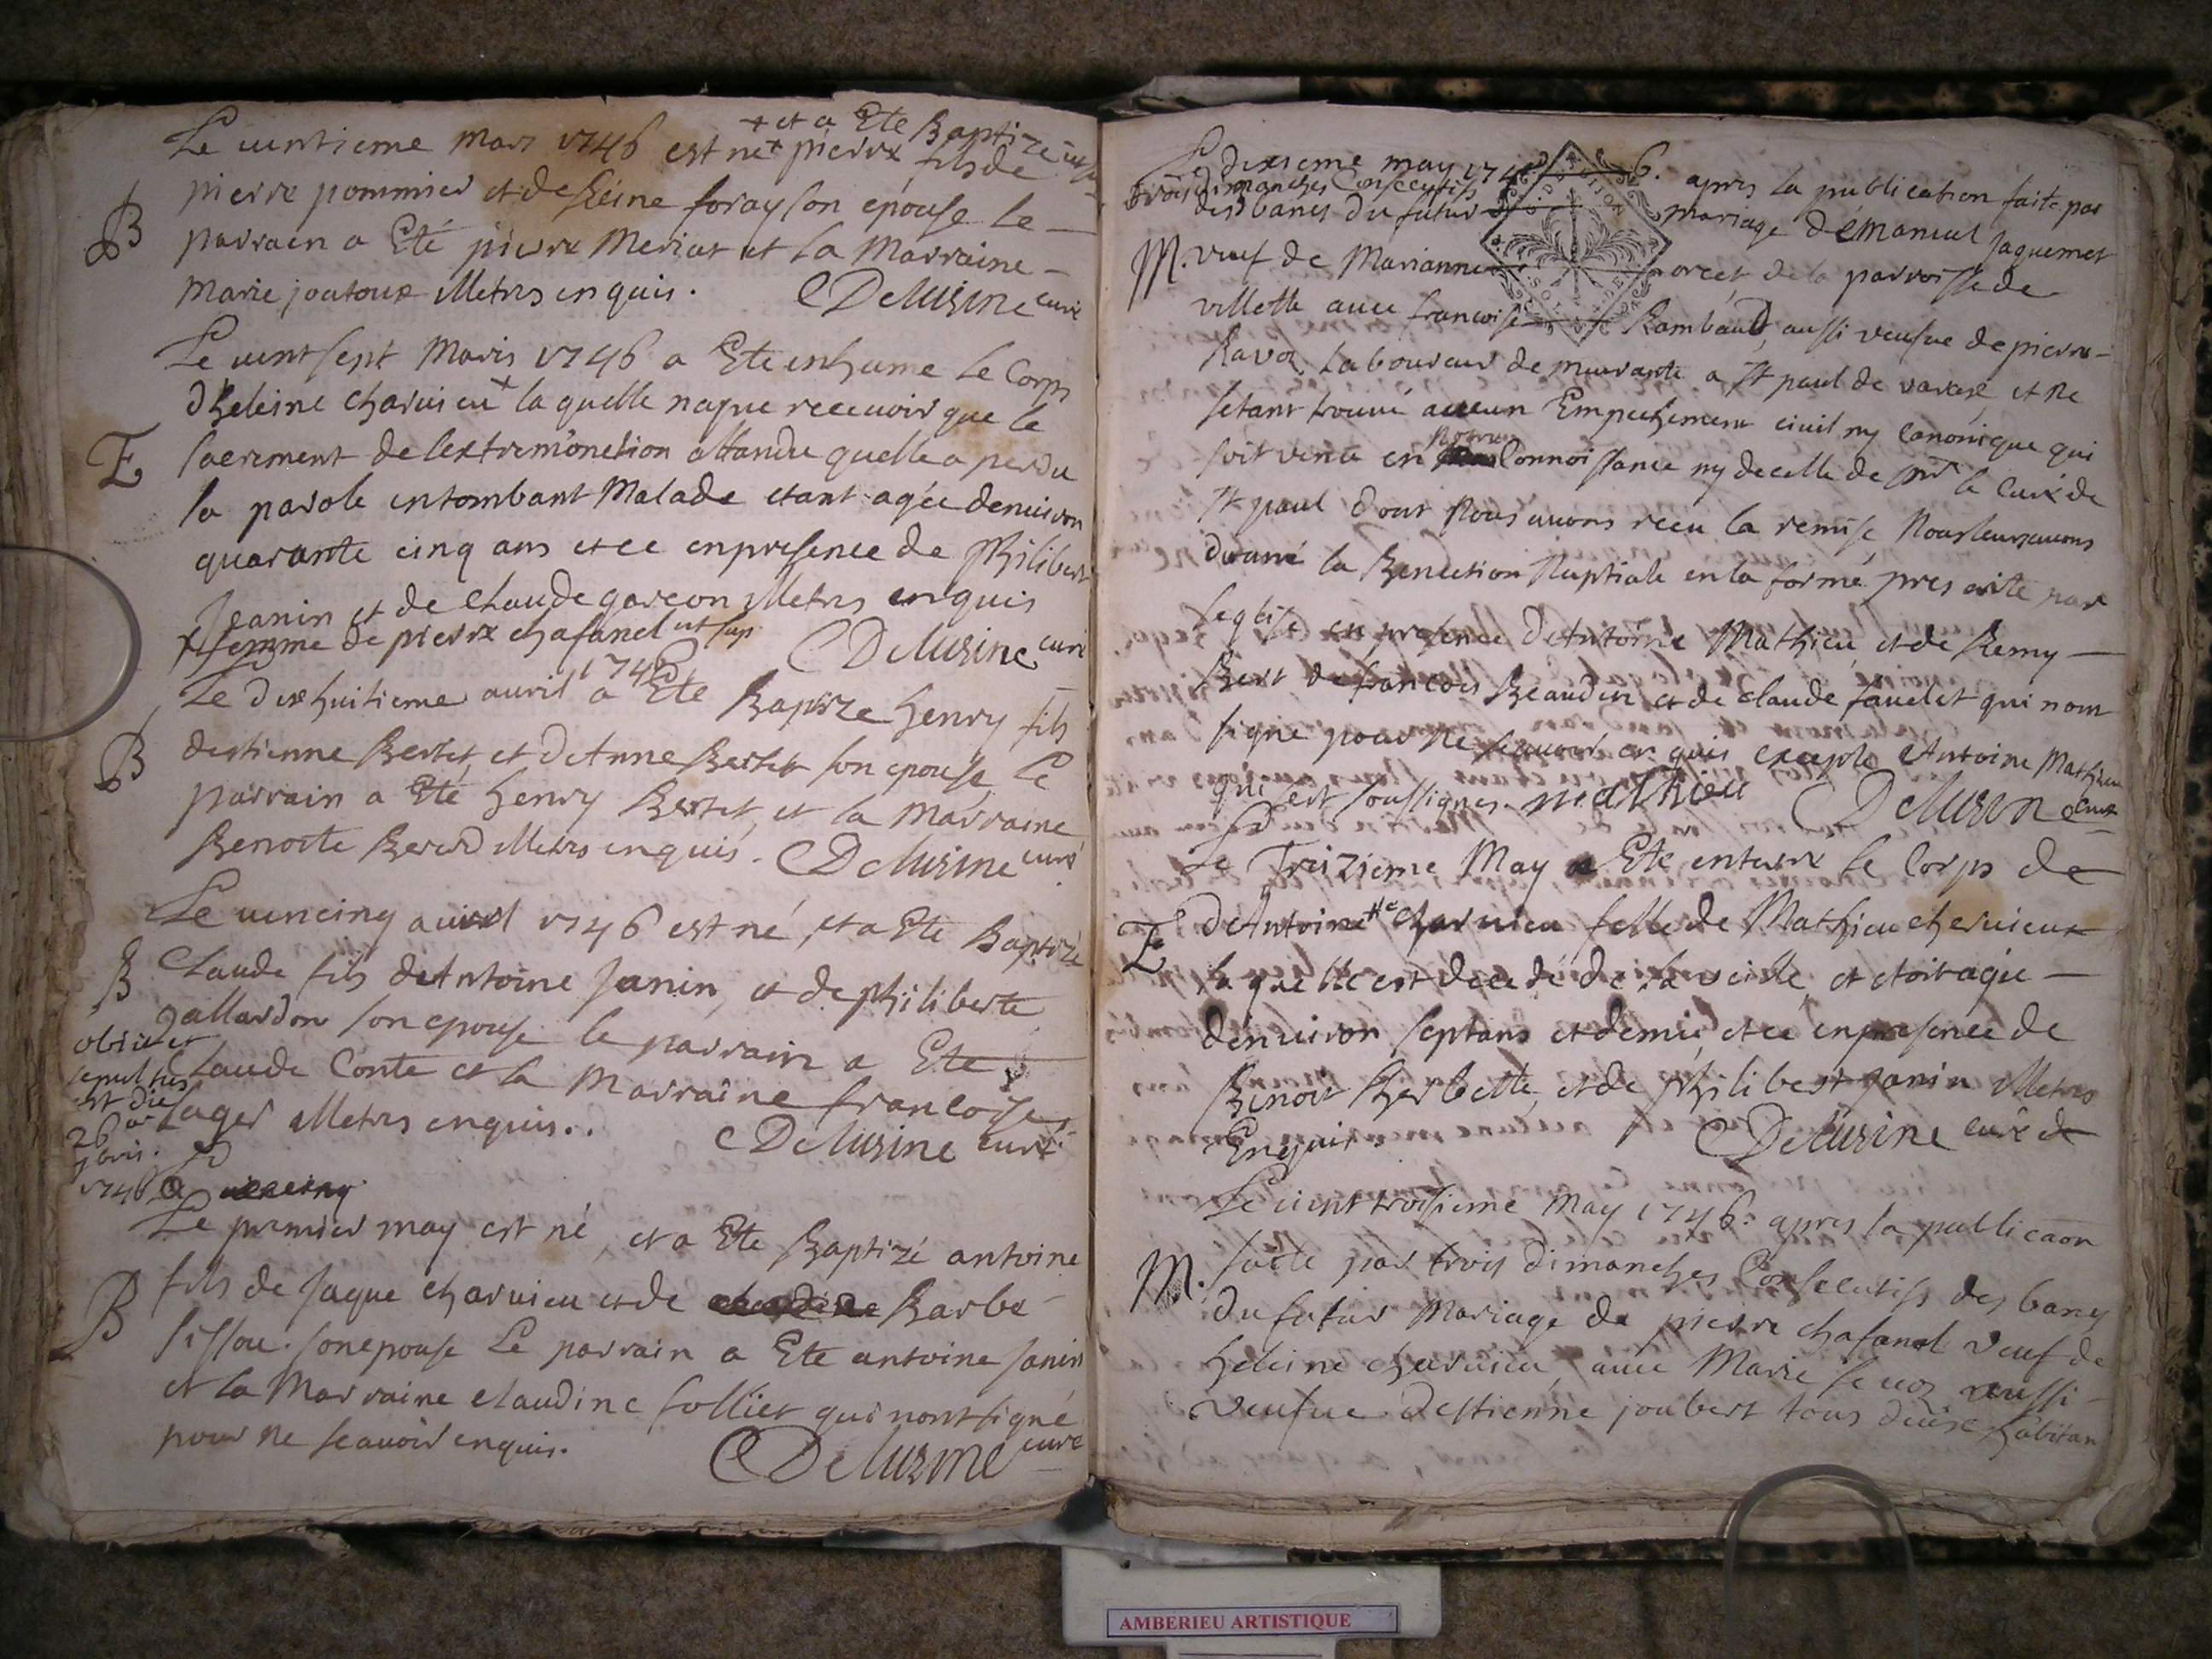 + et a Ete Baptizé
Le uintieme mars 1746 est né + pierre fils de
B
pierre pommier et de Reine foray son epouse Le
parrain a Eté pierre Meriat et La Marraine
Marie joutoux Illetrés enquis. Delusine curé
Le uint sept Mars 1746 a Ete inhume Le Corps
d'heleine charuieu + la quelle na pue receuoir que le
E
sacrement de lextremonction attandu quelle a perdu
la parole entombant Malade etant agée denuiron
quarante cinq ans et ce enpresence de philibert
Jeanin et de Claude garcon Illetrés enquis
+ femme de pierre chafanel ut sup. Delusine curé
Le dixhuitieme auril 1746 a Ete Baptize henry fils
B
destienne Bertet et dAnne Bertet son epouse Le
parrain a Eté henry Bertet, et la Marraine
Benoite Bererd Illetrés enquis. Delusine curé
Le uencinq auril 1746 est né, et a Ete Baptizé
B
Claude fils dAntoine Janin, et de philiberte
gallardon son epouse le parrain a Ete
Claude Conte et la Marraine francoise
Sager Illetrés enquis.. Delusine curé
obiit et
sepultus
est die
26
1746
Le premier may est né, et a Ete Baptizé antoine
B
fils de Jaque charuieu et de Barbe
sissou son epouse Le parrain a Ete antoine Janin
et la Marraine claudine folliet qui nont signé
pour ne scauoir enquis. Delusine curé
Le dixieme may 1746. apres la publication faite par
trois dimanches Consecutifs
des bancs du futur mariage dEmanuel Jaquemet
M. veuf de Marianne orcet de la parroisse de
villette auec francoise Rambaud, aussi veufue de pierre
Ravoz Laboureur de murante a St paul de varax, et ne
setant trouué aucun Empechement ciuil ny Canonique qui
soit venu en notre Connoissance ny decelle de Mr le Curé de
St paul dont Nous auons receu la remise Nous leur auons
donné la Benection Nuptiale en la forme prescrite par
leglise en presence dAntoine Mathieu, et de Remy
Bert de francois Beaudin et de claude fauelet qui nont
signé pour ne scauoir enquis excepte Antoine Mathieu
qui est soussignes. mathieu Delusine curé
Le Treizieme May a Ete enterré le Corps de
E
dAntoinette charuieu fille de Mathieu cheruieux
la quelle est decedé de la veille, et etoit agée
denuiron sept ans et demie, et ce enpresence de
Benoit Berbette, et de philibert Janin Illetrés
Enquis. Delusine curé
Le uint troisieme May 1746. apres la publicaon
M. faite par trois dimanches Consecutifs des bancs
du futur Mariage de pierre chafanel veuf de
heleine charuieu, auec Marie seuoz aussi
veufue destienne joubert tous deux habitan
AMBERIEU ARTISTIQUE